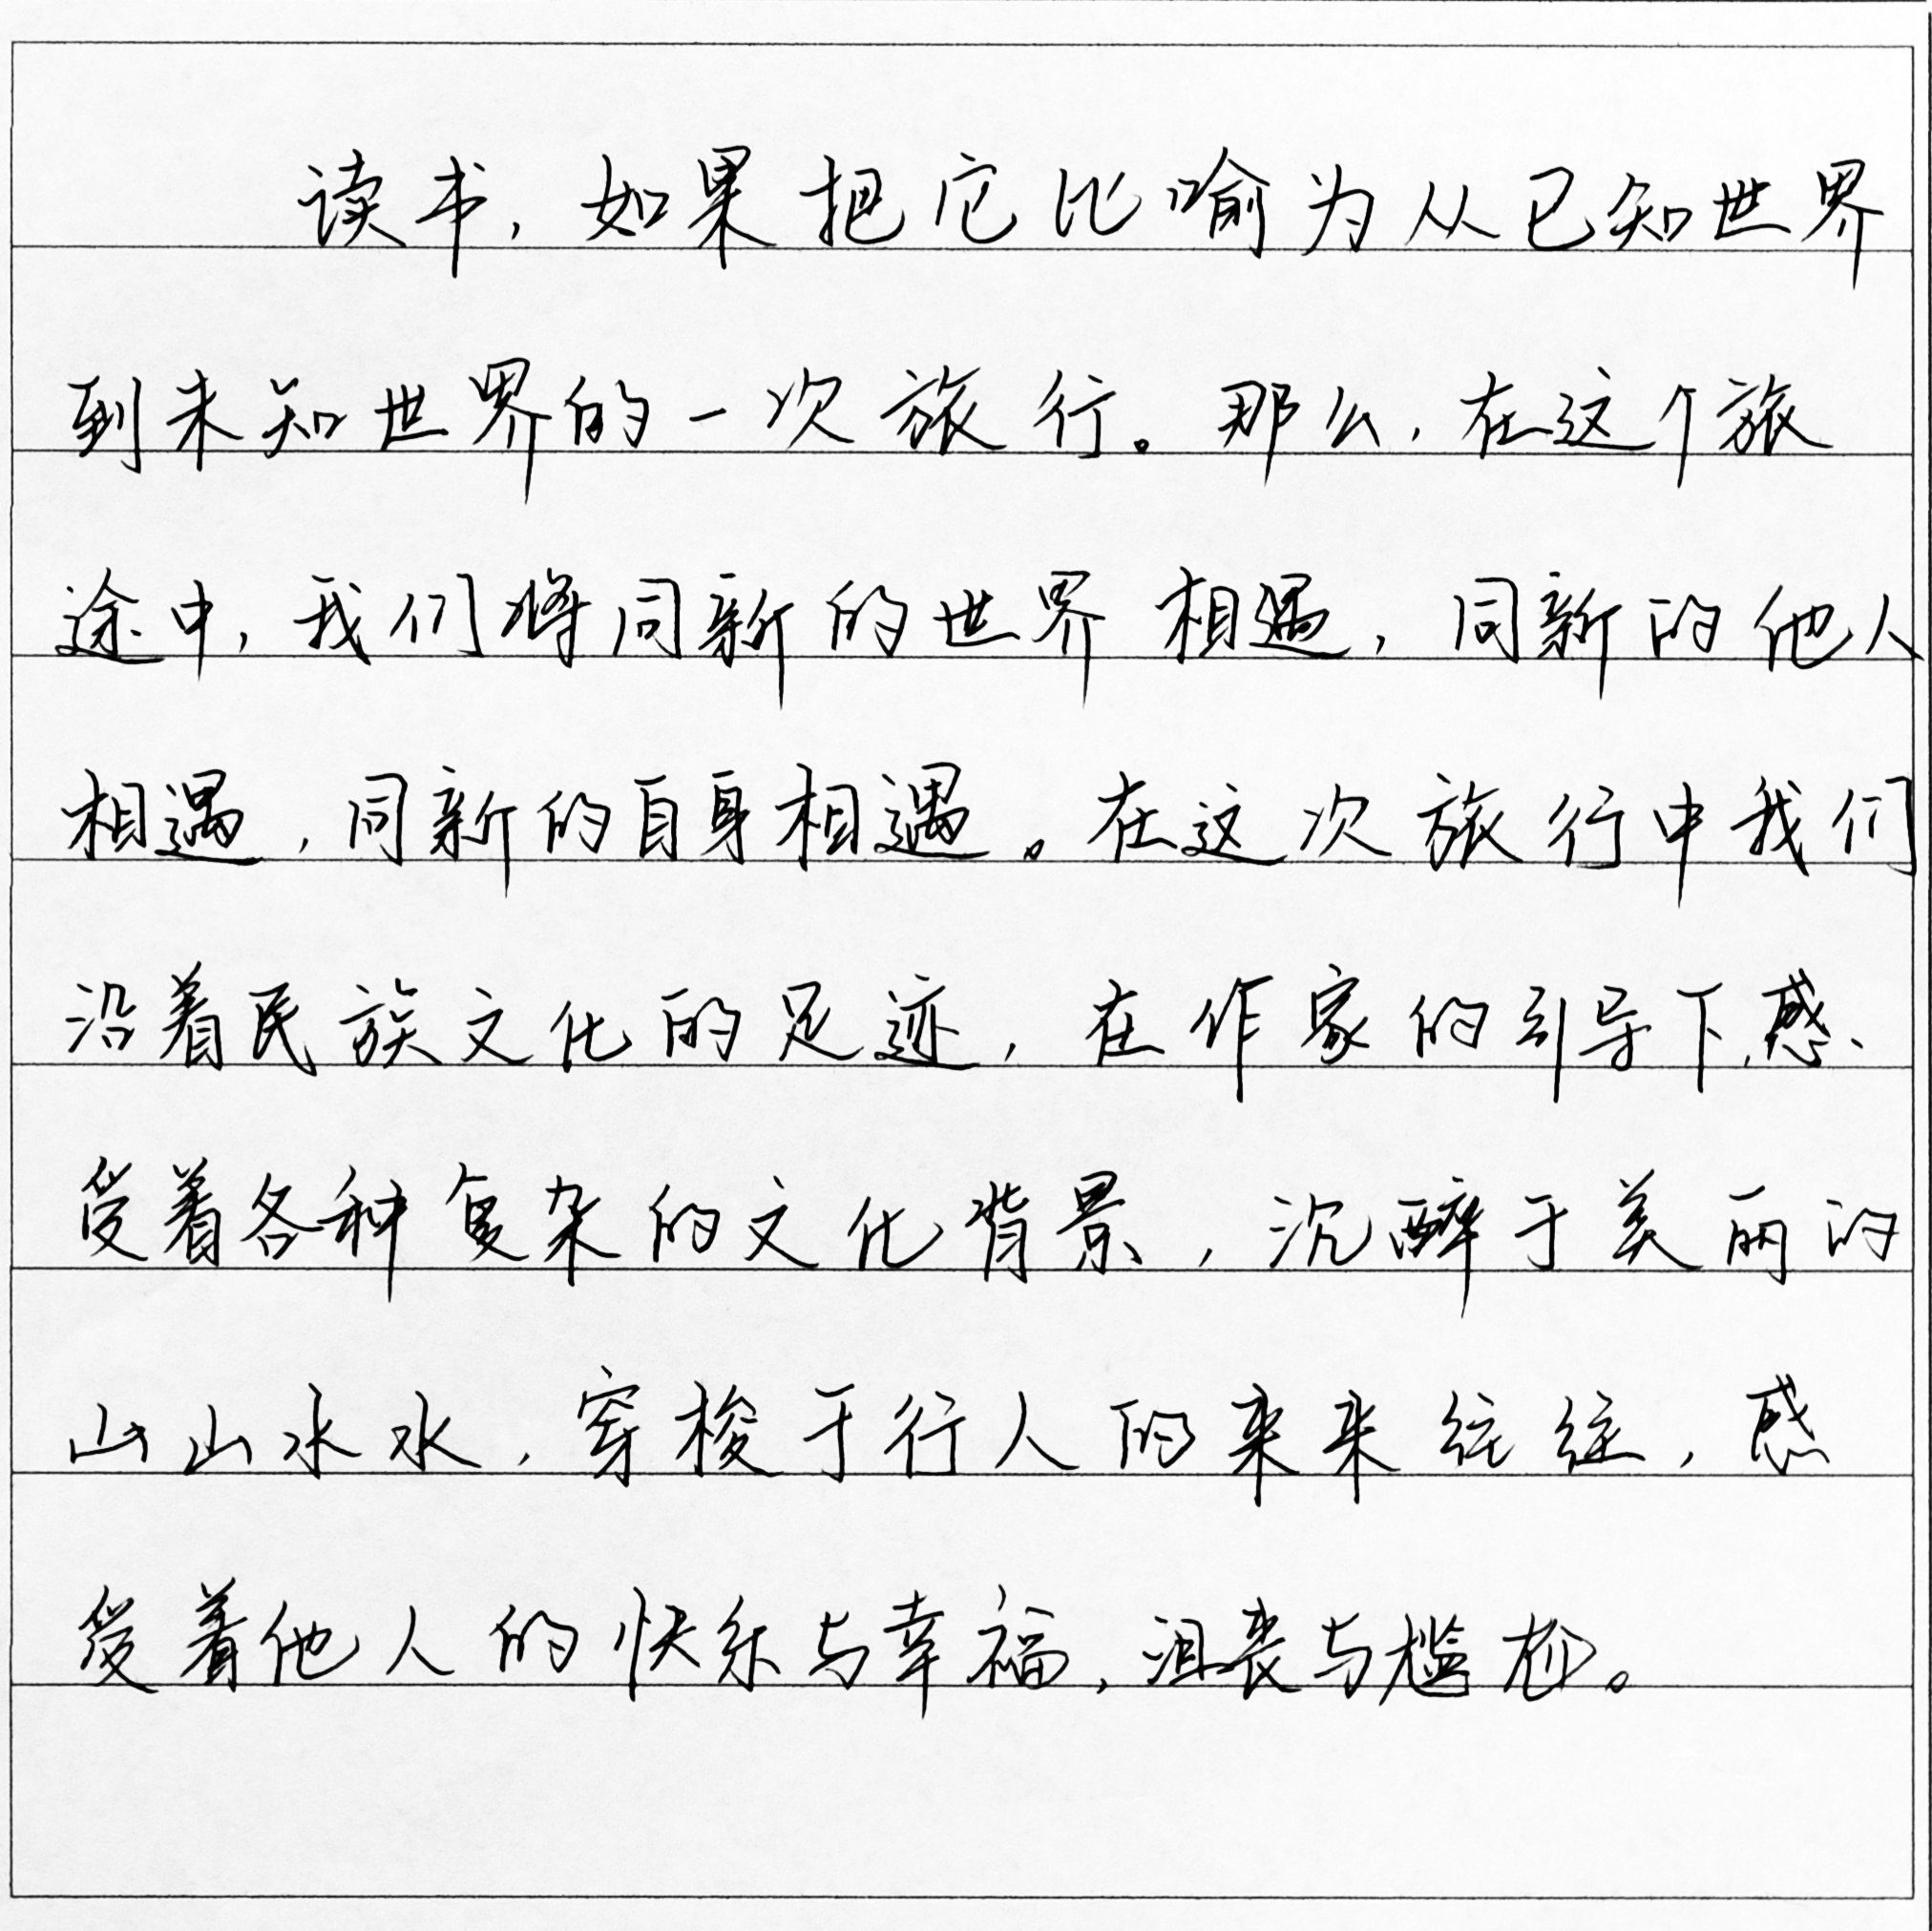 读书，如果把它比喻为从已知世界
到未知世界的一次旅行。那么，在这个旅
途中，我们将同新的世界相遇，同新的他人
相遇，同新的自身相遇。在这次旅行中我们
沿着民族文化的足迹，在作家的引导下，感
受着各种复杂的文化背景，沉醉于美丽的
山山水水，穿梭于行人的来来往往，感
受着他人的快乐与幸福，沮丧与尴尬。